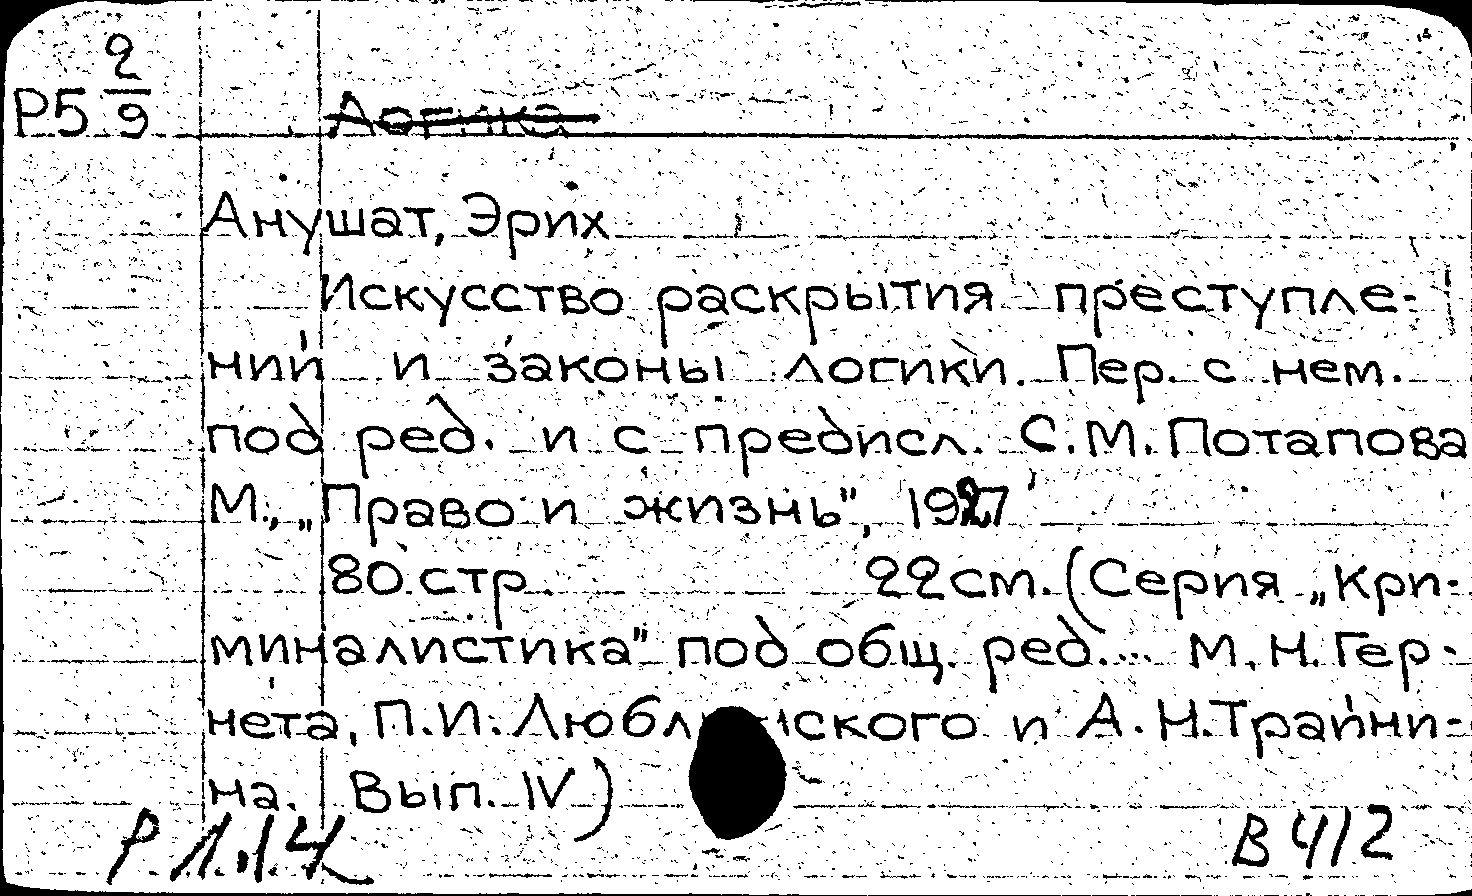 Р5 2/9
Логика
Анушат, Эрих
Искусство раскрытия преступле-
ний и законы логики. Пер. с нем.
под ред. и с предисл. С.М. Потапова
М., „Право и жизнь", 1927
80 стр. 22 см. (Серия „Кри-
миналистика" под общ. ред... М.Н. Гер-
нета, П.И. Люблинского и А.Н. Трайни-
на. Вып. IV)
В 412